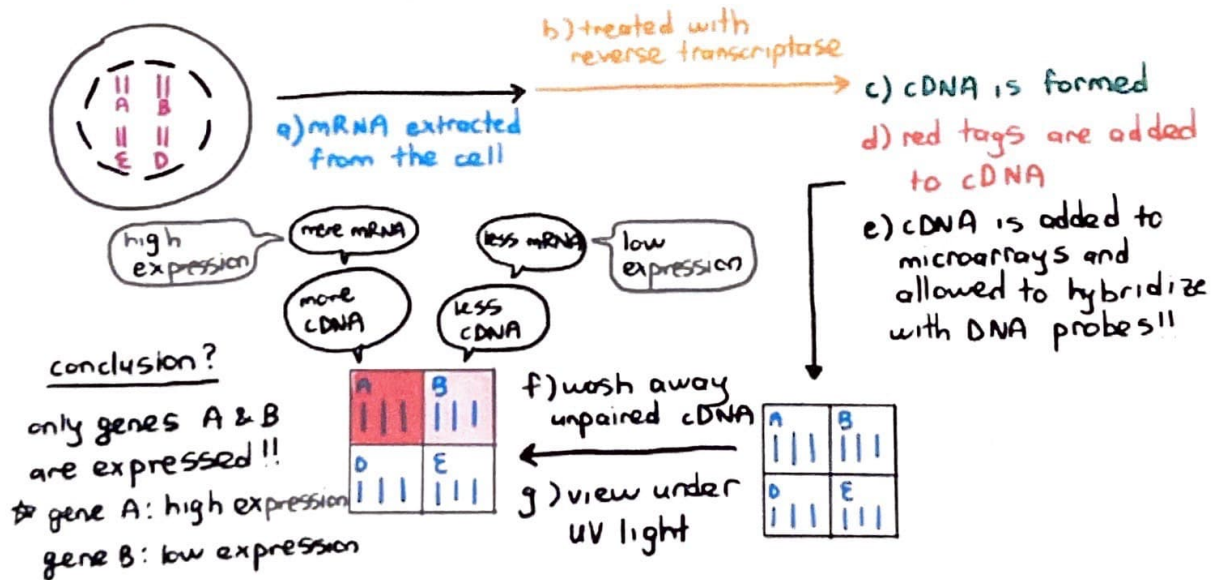 A B
E D
a) mRNA extracted
from the cell
b) treated with
reverse transcriptase
c) cDNA is formed
d) red tags are added
to cDNA
e) cDNA is added to
microarrays and
allowed to hybridize
with DNA probes!!
A B
D E
f) wash away
unpaired cDNA
g) view under
UV light
high
expression
more mRNA
more
cDNA
less mRNA
low
expression
less
cDNA
A B
D E
conclusion?
only genes A & B
are expressed!!
☆ gene A: high expression
gene B: low expression